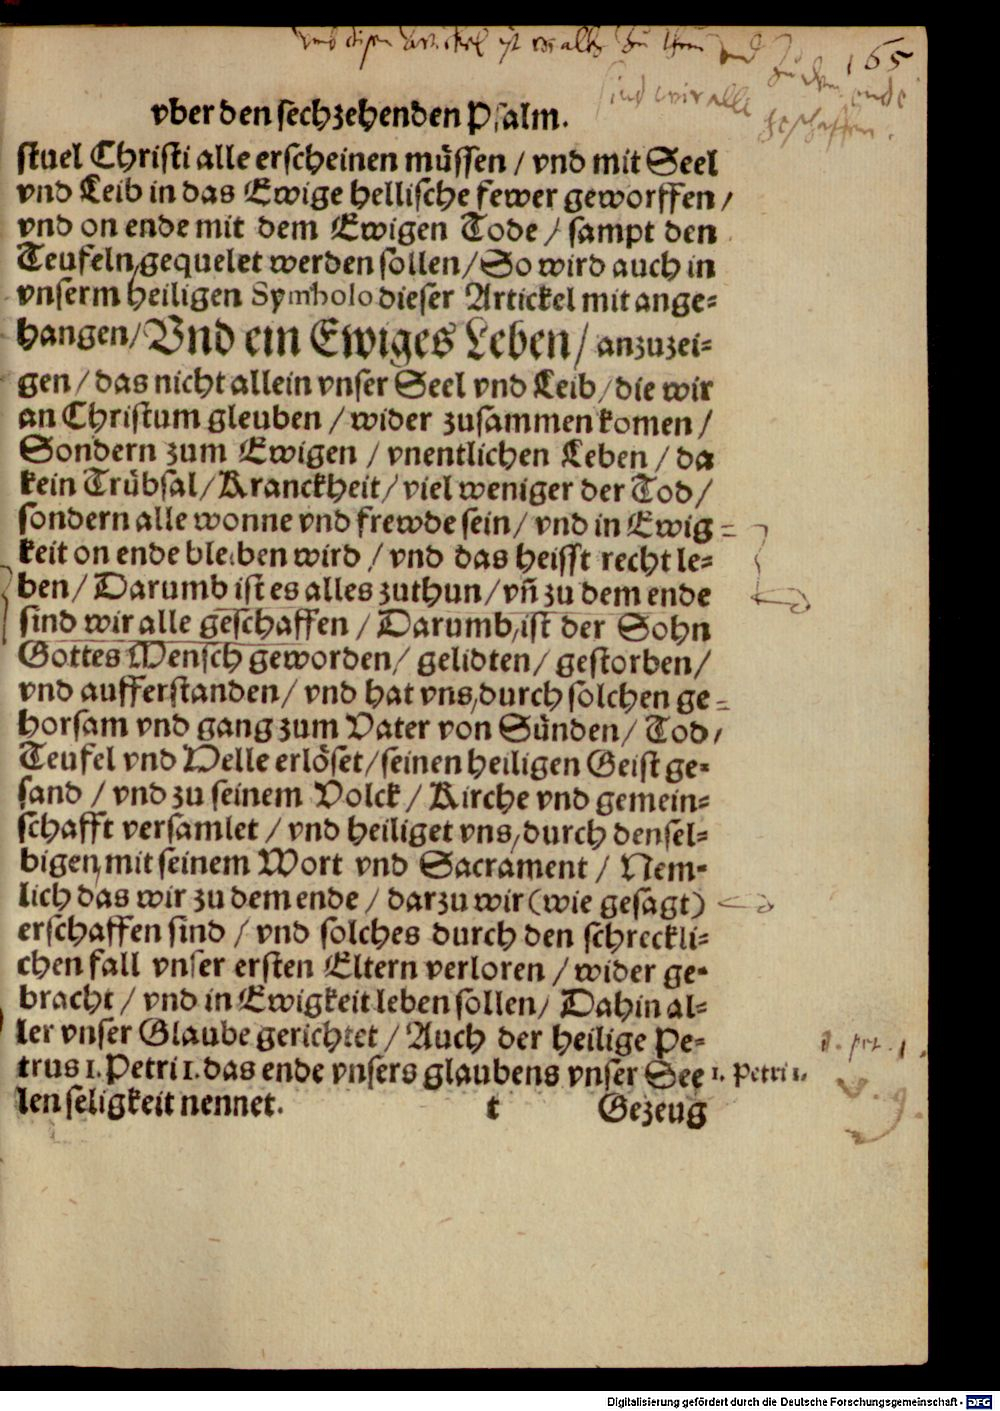 vmb disen Artickel ist es alles zu thun vnd zu dem ende
165
sind wir alle geschaffen.
vber den sechzehenden Psalm.
stuel Christi alle erscheinen müssen / vnd mit Seel
vnd Leib in das Ewige hellische fewer geworffen /
vnd on ende mit dem Ewigen Tode / sampt den
Teufeln, gequelet werden sollen / So wird auch in
vnserm heiligen Symbolo dieser Artickel mit ange⸗
hangen / Vnd ein Ewiges Leben / anzuzei⸗
gen / das nicht allein vnser Seel vnd Leib / die wir
an Christum gleuben / wider zusammen komen /
Sondern zum Ewigen / vnentlichen Leben / da
kein Trübsal / Kranckheit / viel weniger der Tod /
sondern alle wonne vnd frewde sein / vnd in Ewig⸗
keit on ende bleiben wird / vnd das heisst recht le⸗
ben / Darumb ist es alles zuthun / vñ zu dem ende
sind wir alle geschaffen / Darumb, ist der Sohn
Gottes Mensch geworden / gelidten / gestorben /
vnd aufferstanden / vnd hat vns, durch solchen ge⸗
horsam vnd gang zum Vater von Sünden / Tod /
Teufel vnd Helle erlöset / seinen heiligen Geist ge⸗
sand / vnd zu seinem Volck / Kirche vnd gemein⸗
schafft versamlet / vnd heiliget vns, durch densel⸗
bigen, mit seinem Wort vnd Sacrament / Nem⸗
lich das wir zu dem ende / darzu wir (wie gesagt)
erschaffen sind / vnd solches durch den schreckli⸗
chen fall vnser ersten Eltern verloren / wider ge⸗
bracht / vnd in Ewigkeit leben sollen / Dahin al⸗
ler vnser Glaube gerichtet / Auch der heilige Pe⸗
trus 1. Petri 1. das ende vnsers glaubens vnser See
1. Petri 1.
1. pet. 1.
v. 9.
len seligkeit nennet.
t Gezeug
Digitalisierung gefördert durch die Deutsche Forschungsgemeinschaft - DFG